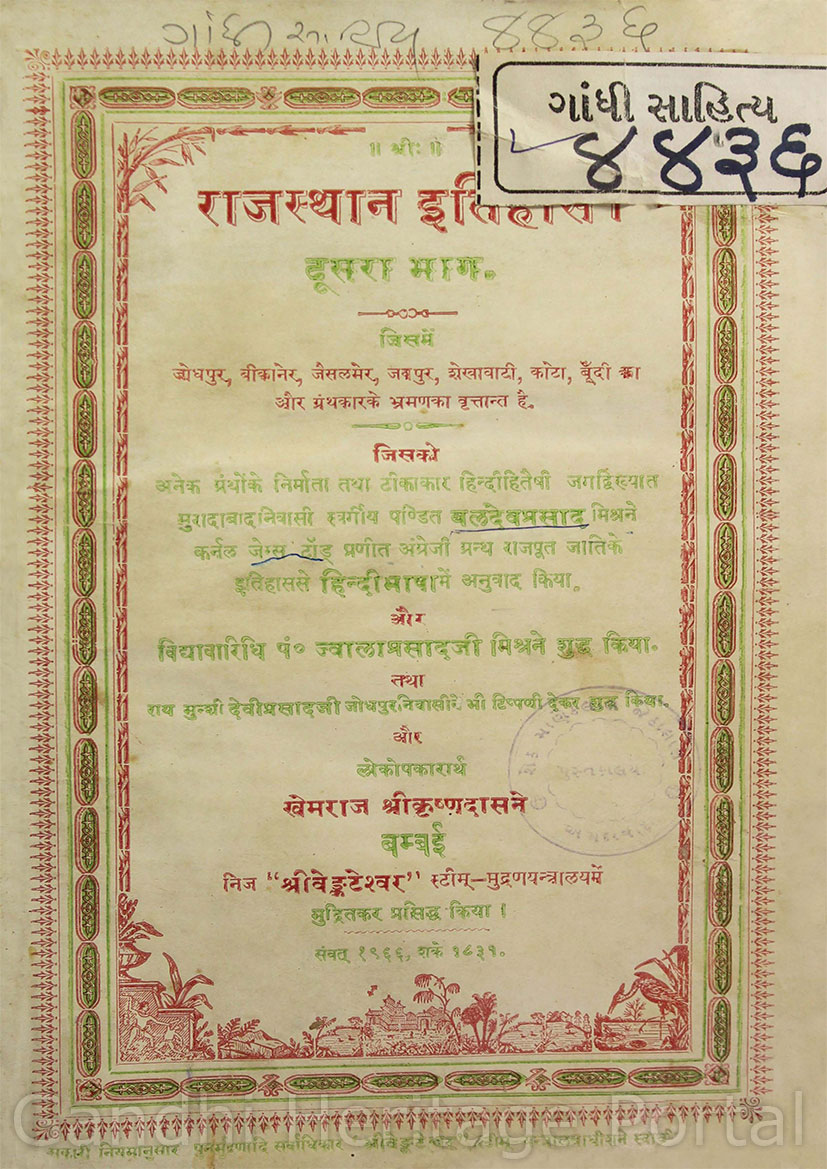 ગાંધી સાહિત્ય ૪૪૩૬
ગાંધી સાહિત્ય
૪૪૩૬
॥ श्रीः ॥
राजस्थान इतिहास।
दूसरा भाग.
जिसमें
जोधपुर, बीकानेर, जैसलमेर, जयपुर, शेखावाटी, कोटा, बूँदी का
और ग्रंथकारके भ्रमणका वृत्तान्त है.
जिसको
अनेक ग्रंथोंके निर्माता तथा टीकाकार हिन्दीहितैषी जगद्विख्यात
मुरादाबादनिवासी स्वर्गीय पण्डित बलदेवप्रसाद मिश्रने
कर्नल जेम्स टॉड् प्रणीत अंग्रेजी ग्रन्थ राजपूत जातिके
इतिहाससे हिन्दीभाषामें अनुवाद किया.
और
विद्यावारिधि पं० ज्वालाप्रसादजी मिश्रने शुद्ध किया.
तथा
राय मुन्शी देवीप्रसादजी जोधपुरनिवासीने भी टिप्पणी देकर शुद्ध किया.
और
लोकोपकारार्थ
खेमराज श्रीकृष्णदासने
बम्बई
निज "श्रीवेङ्कटेश्वर" स्टीम्-मुद्रणयन्त्रालयमें
मुद्रितकर प्रसिद्ध किया।
संवत् १९६६, शके १८३१.
પુસ્તકાલય
Gandhi Heritage Portal
नियमानुसार पुनर्मुद्रणादि सर्वाधिकार